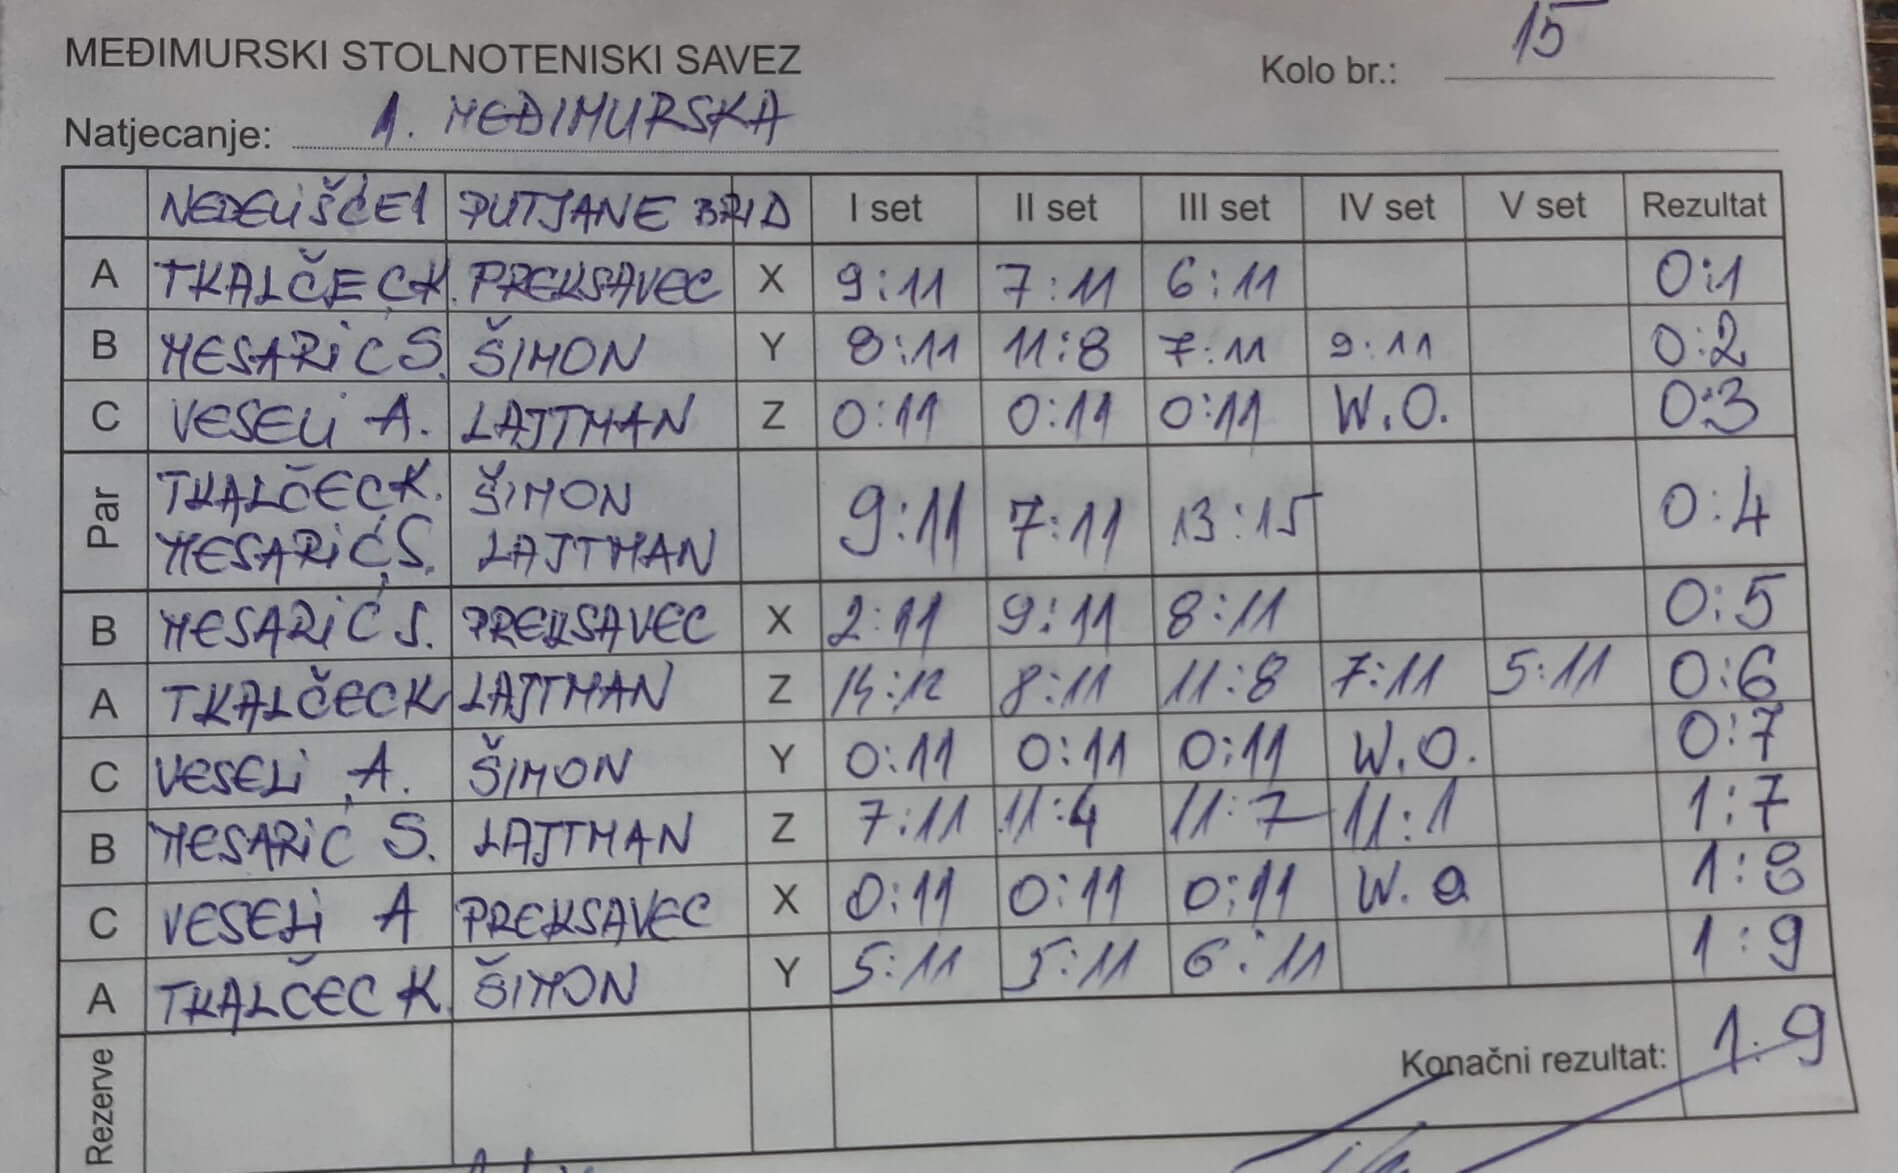 MEĐIMURSKI STOLNOTENISKI SAVEZ Kolo br.: 15
Natjecanje: 1. MEĐIMURSKA
NEDELIŠĆE 1 PUTJANE BRID I set II set III set IV set V set Rezultat
A TKALČEC K. PREKSAVEC X 9:11 7:11 6:11 0:1
B MESARIĆ S. ŠIMON Y 8:11 11:8 7:11 9:11 0:2
C VESELI A. LAJTMAN Z 0:11 0:11 0:11 W.O. 0:3
Par TKALČEC K. ŠIMON 9:11 7:11 13:15 0:4
MESARIĆ S. LAJTMAN
B MESARIĆ S. PREKSAVEC X 2:11 9:11 8:11 0:5
A TKALČEC K LAJTMAN Z 14:12 8:11 11:8 7:11 5:11 0:6
C VESELI A. ŠIMON Y 0:11 0:11 0:11 W.O. 0:7
B MESARIĆ S. LAJTMAN Z 7:11 11:4 11:7 11:1 1:7
C VESELI A PREKSAVEC X 0:11 0:11 0:11 W.O 1:8
A TKALČEC K. ŠIMON Y 5:11 5:11 6:11 1:9
Rezerve Konačni rezultat: 1:9